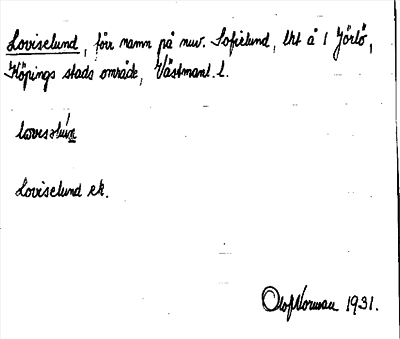 Loviselund, förr namn på nuv. Sofielund, lht å 1 Jörlö,
Köpings stads område, Västmanl. l.
Loviselund ek.
Olof Norman 1931.